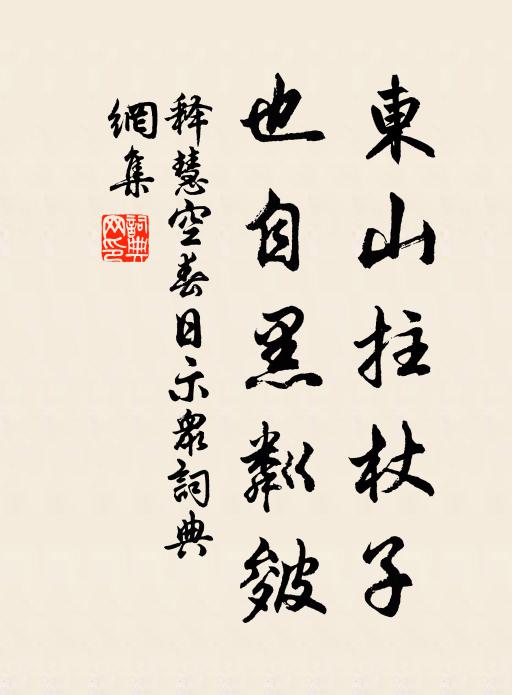 東山拄杖子
也自黑粼皴
释慧空春日示眾詞典
網集
詞典網印